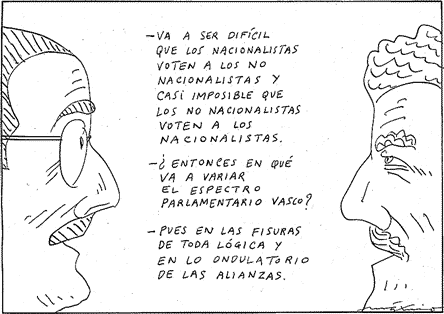 –VA A SER DIFÍCIL
QUE LOS NACIONALISTAS
VOTEN A LOS NO
NACIONALISTAS Y
CASI IMPOSIBLE QUE
LOS NO NACIONALISTAS
VOTEN A LOS
NACIONALISTAS.
–¿ENTONCES EN QUÉ
VA A VARIAR
EL ESPECTRO
PARLAMENTARIO VASCO?
–PUES EN LAS FISURAS
DE TODA LÓGICA Y
EN LO ONDULATORIO
DE LAS ALIANZAS.
máximo